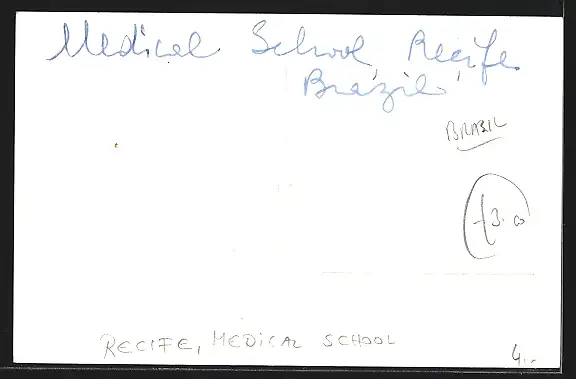 Medical School, Recife,
Brazil
BRAZIL
£3.00
RECIFE, MEDICAL SCHOOL
4.-